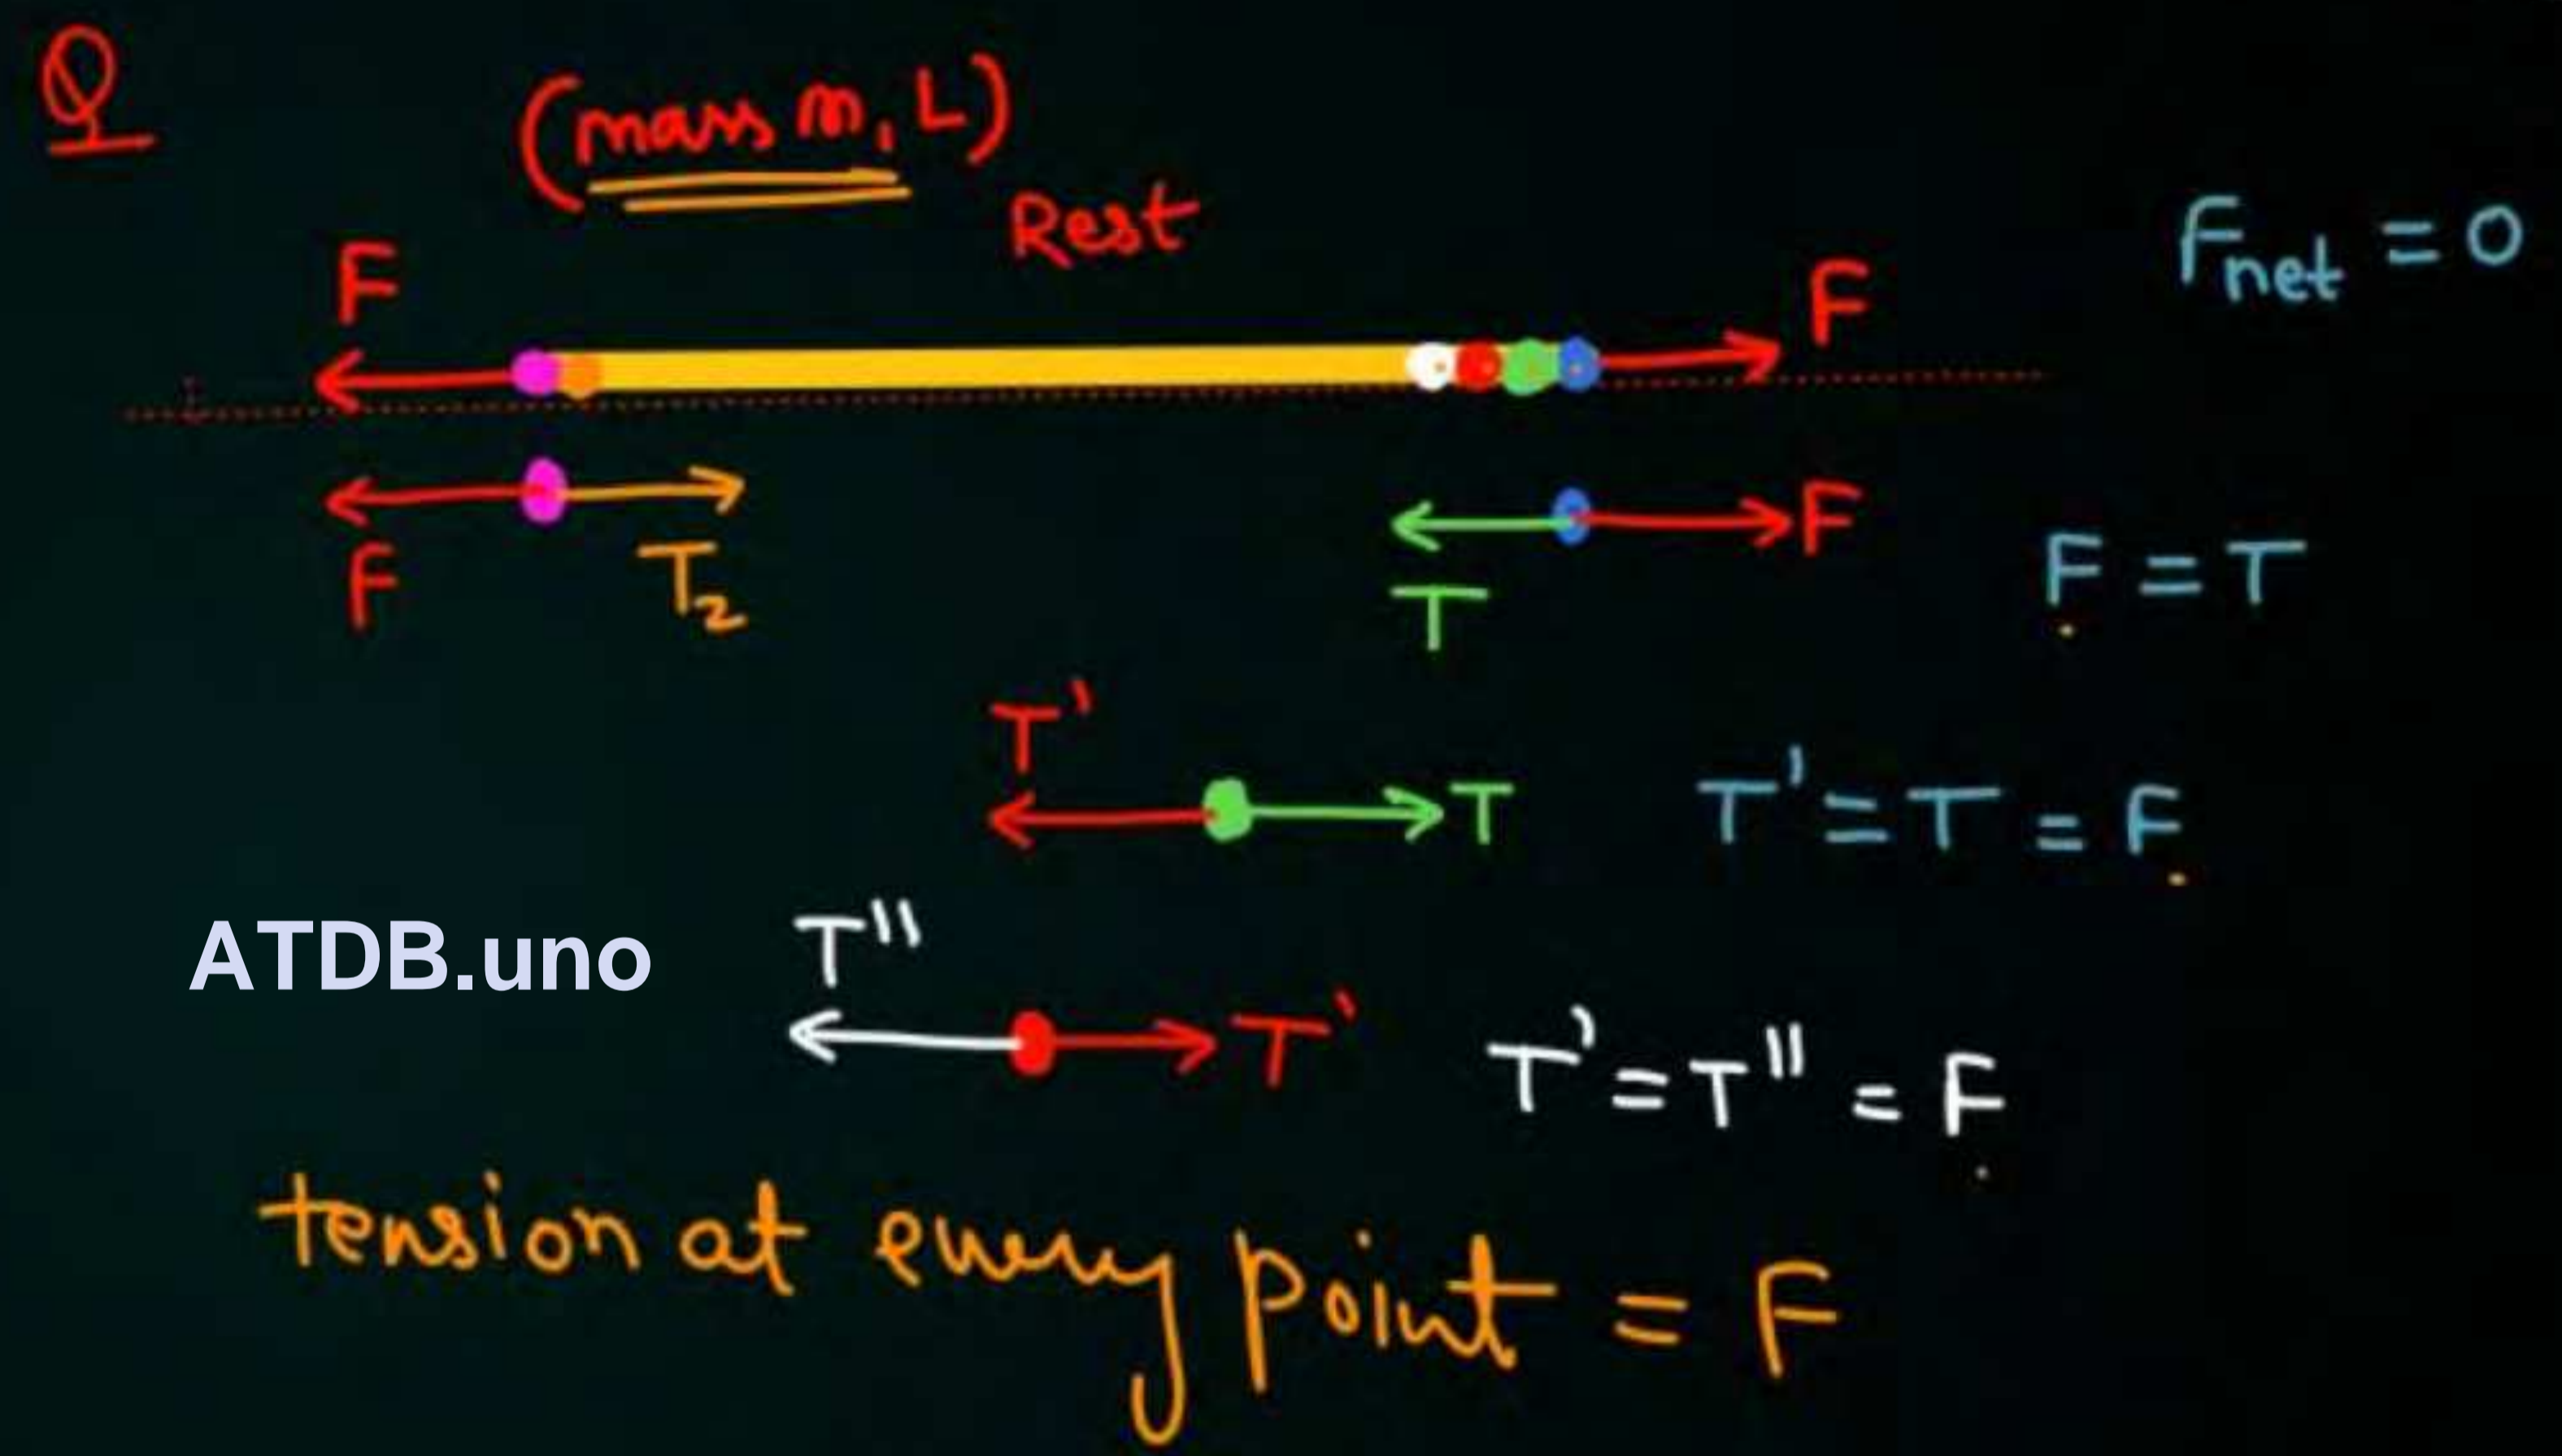 Q
(mass m, L)
Rest
F
F
F_net = 0
F
T₂
T
F
F = T
T'
T
T' = T = F
ATDB.uno
T''
T'
T' = T'' = F
tension at every point = F